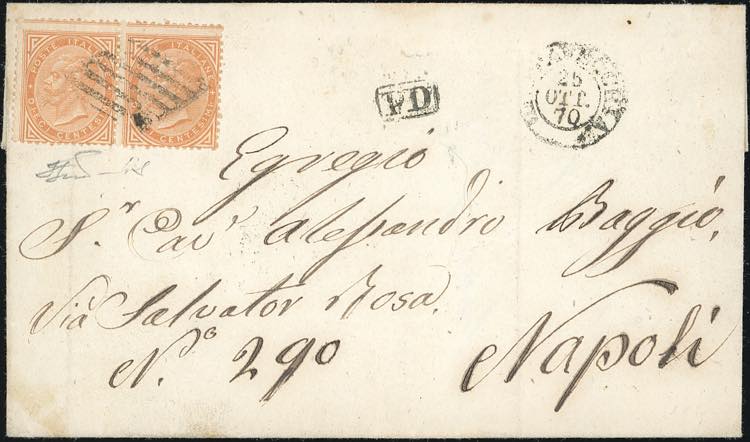 POSTE ITALIANE
DIECI CENTESIMI
POSTE ITALIANE
CENTESIMI
PD
25
OTT.
70
Egregio
S.r Cav.r Alessandro Baggio,
Via Salvator Rosa.
N.o 290
Napoli